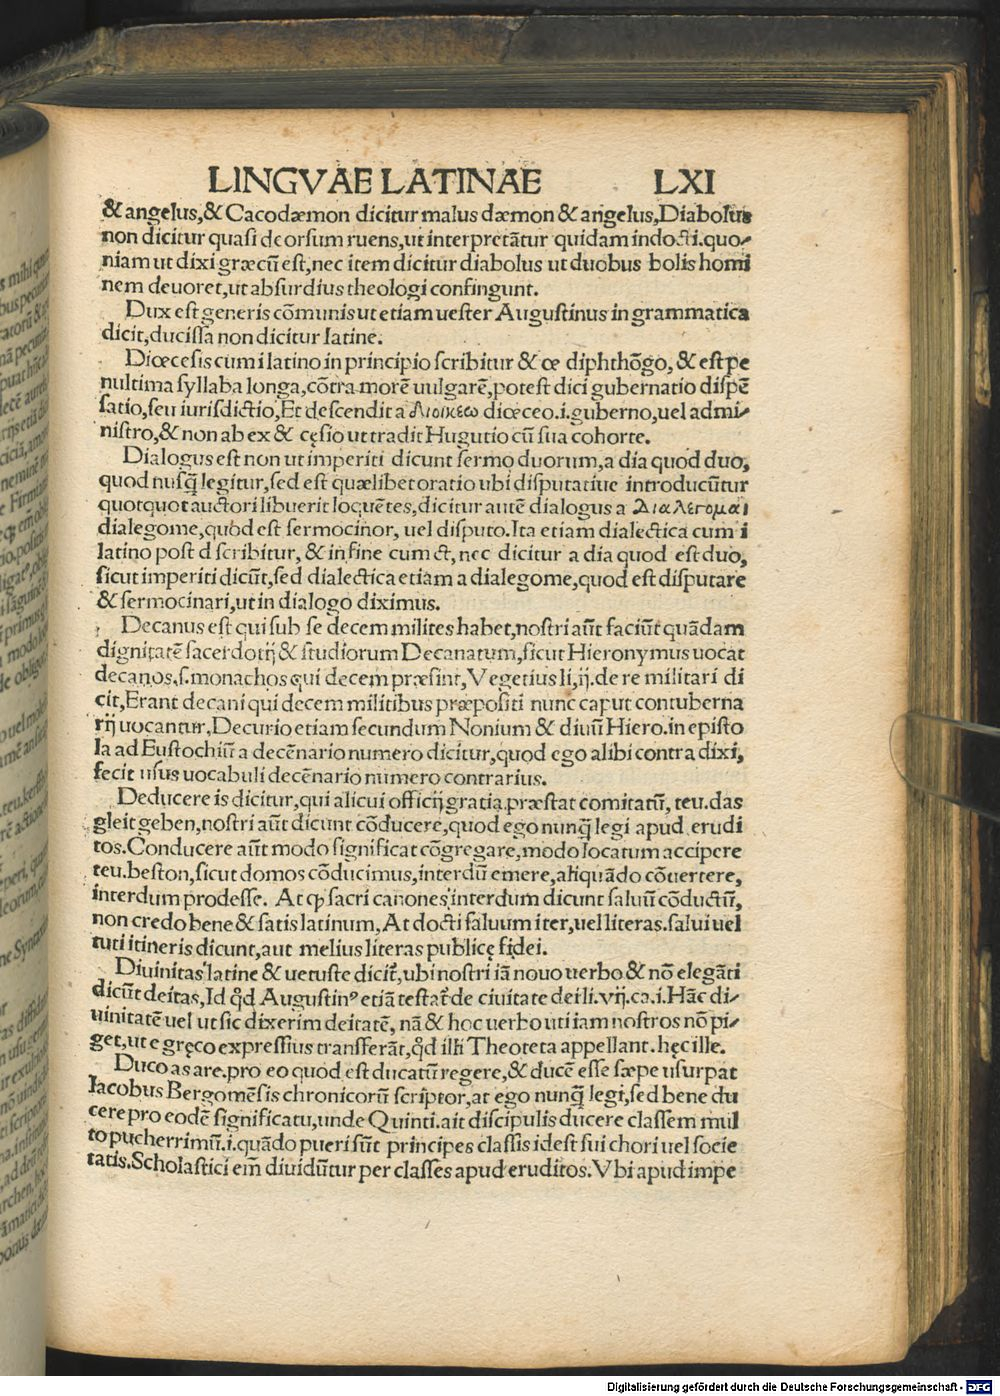 LINGVAE LATINAE LXI
& angelus,& Cacodæmon dicitur malus dæmon & angelus,Diabolus
non dicitur quasi deorsum ruens,ut interpretãtur quidam indocti.quo-
niam ut dixi græcũ est,nec item dicitur diabolus ut duobus bolis homi
nem deuoret,ut absurdius theologi confingunt.
Dux est generis cõmunis ut etiam uester Augustinus in grammatica
dicit,ducissa non dicitur latine.
Diœcesis cum i latino in principio scribitur & œ diphthõgo, & est pe
nultima syllaba longa,cõtra morẽ uulgarẽ,potest dici gubernatio dispẽ
satio,seu iurisdictio,Et descendit a Διοικεω diœceo.i.guberno,uel admi-
nistro,& non ab ex & cęsio ut tradit Hugutio cũ sua cohorte.
Dialogus est non ut imperiti dicunt sermo duorum,a dia quod duo,
quod nusq̃ legitur,sed est quælibet oratio ubi disputatiue introducũtur
quotquot auctori libuerit loquẽtes,dicitur autẽ dialogus a Διαλεγομαι
dialegome,quod est sermocinor, uel disputo.Ita etiam dialectica cum i
latino post d scribitur, & in fine cum ct, nec dicitur a dia quod est duo,
sicut imperiti dicũt,sed dialectica etiam a dialegome,quod est disputare
& sermocinari,ut in dialogo diximus.
Decanus est qui sub se decem milites habet,nostri aũt faciũt quãdam
dignitatẽ sacerdotij & studiorum Decanatum,sicut Hieronymus uocat
decanos.s.monachos qui decem præsint,Vegetius li,ij.de re militari di
cit,Erant decani qui decem militibus præpositi nunc caput contuberna
rij uocantur.Decurio etiam secundum Nonium & diuũ Hiero.in episto
la ad Eustochiũ a decẽnario numero dicitur,quod ego alibi contra dixi,
fecit usus uocabuli decẽnario numero contrarius.
Deducere is dicitur,qui alicui officij gratia præstat comitatũ, teu.das
gleit geben,nostri aũt dicunt cõducere,quod ego nunq̃ legi apud erudi
tos.Conducere aũt modo significat cõgregare,modo locatum accipere
teu.beston,sicut domos cõducimus,interdũ emere,aliquãdo cõuertere,
interdum prodesse. At ꝙ sacri canones interdum dicunt saluũ cõductũ,
non credo bene & satis latinum,At docti saluum iter,uel literas.salui uel
tuti itineris dicunt,aut melius literas publicę fidei.
Diuinitas latine & uetuste dicit᷑,ubi nostri iã nouo uerbo & nõ elegãti
dicũt deitas,Id qd̃ Augustinꝰ etiã testat᷑ de ciuitate dei li.vij.ca.i.Hãc di-
uinitatẽ uel ut sic dixerim deitatẽ, nã & hoc uerbo uti iam nostros nõ pi-
get,ut e gręco expressius transferãt,qd̃ illi Theoteta appellant.hęc ille.
Duco as are.pro eo quod est ducatũ regere,& ducẽ esse sæpe usurpat
Iacobus Bergomẽsis chronicorũ scriptor,at ego nunq̃ legi,sed bene du
cere pro eodẽ significatu,unde Quinti.ait discipulis ducere classem mul
to pucherrimũ.i.quãdo pueri sũt principes classis idest sui chori uel socie
tatis.Scholastici em̃ diuidũtur per classes apud eruditos.Vbi apud impe
Digitalisierung gefördert durch die Deutsche Forschungsgemeinschaft - DFG